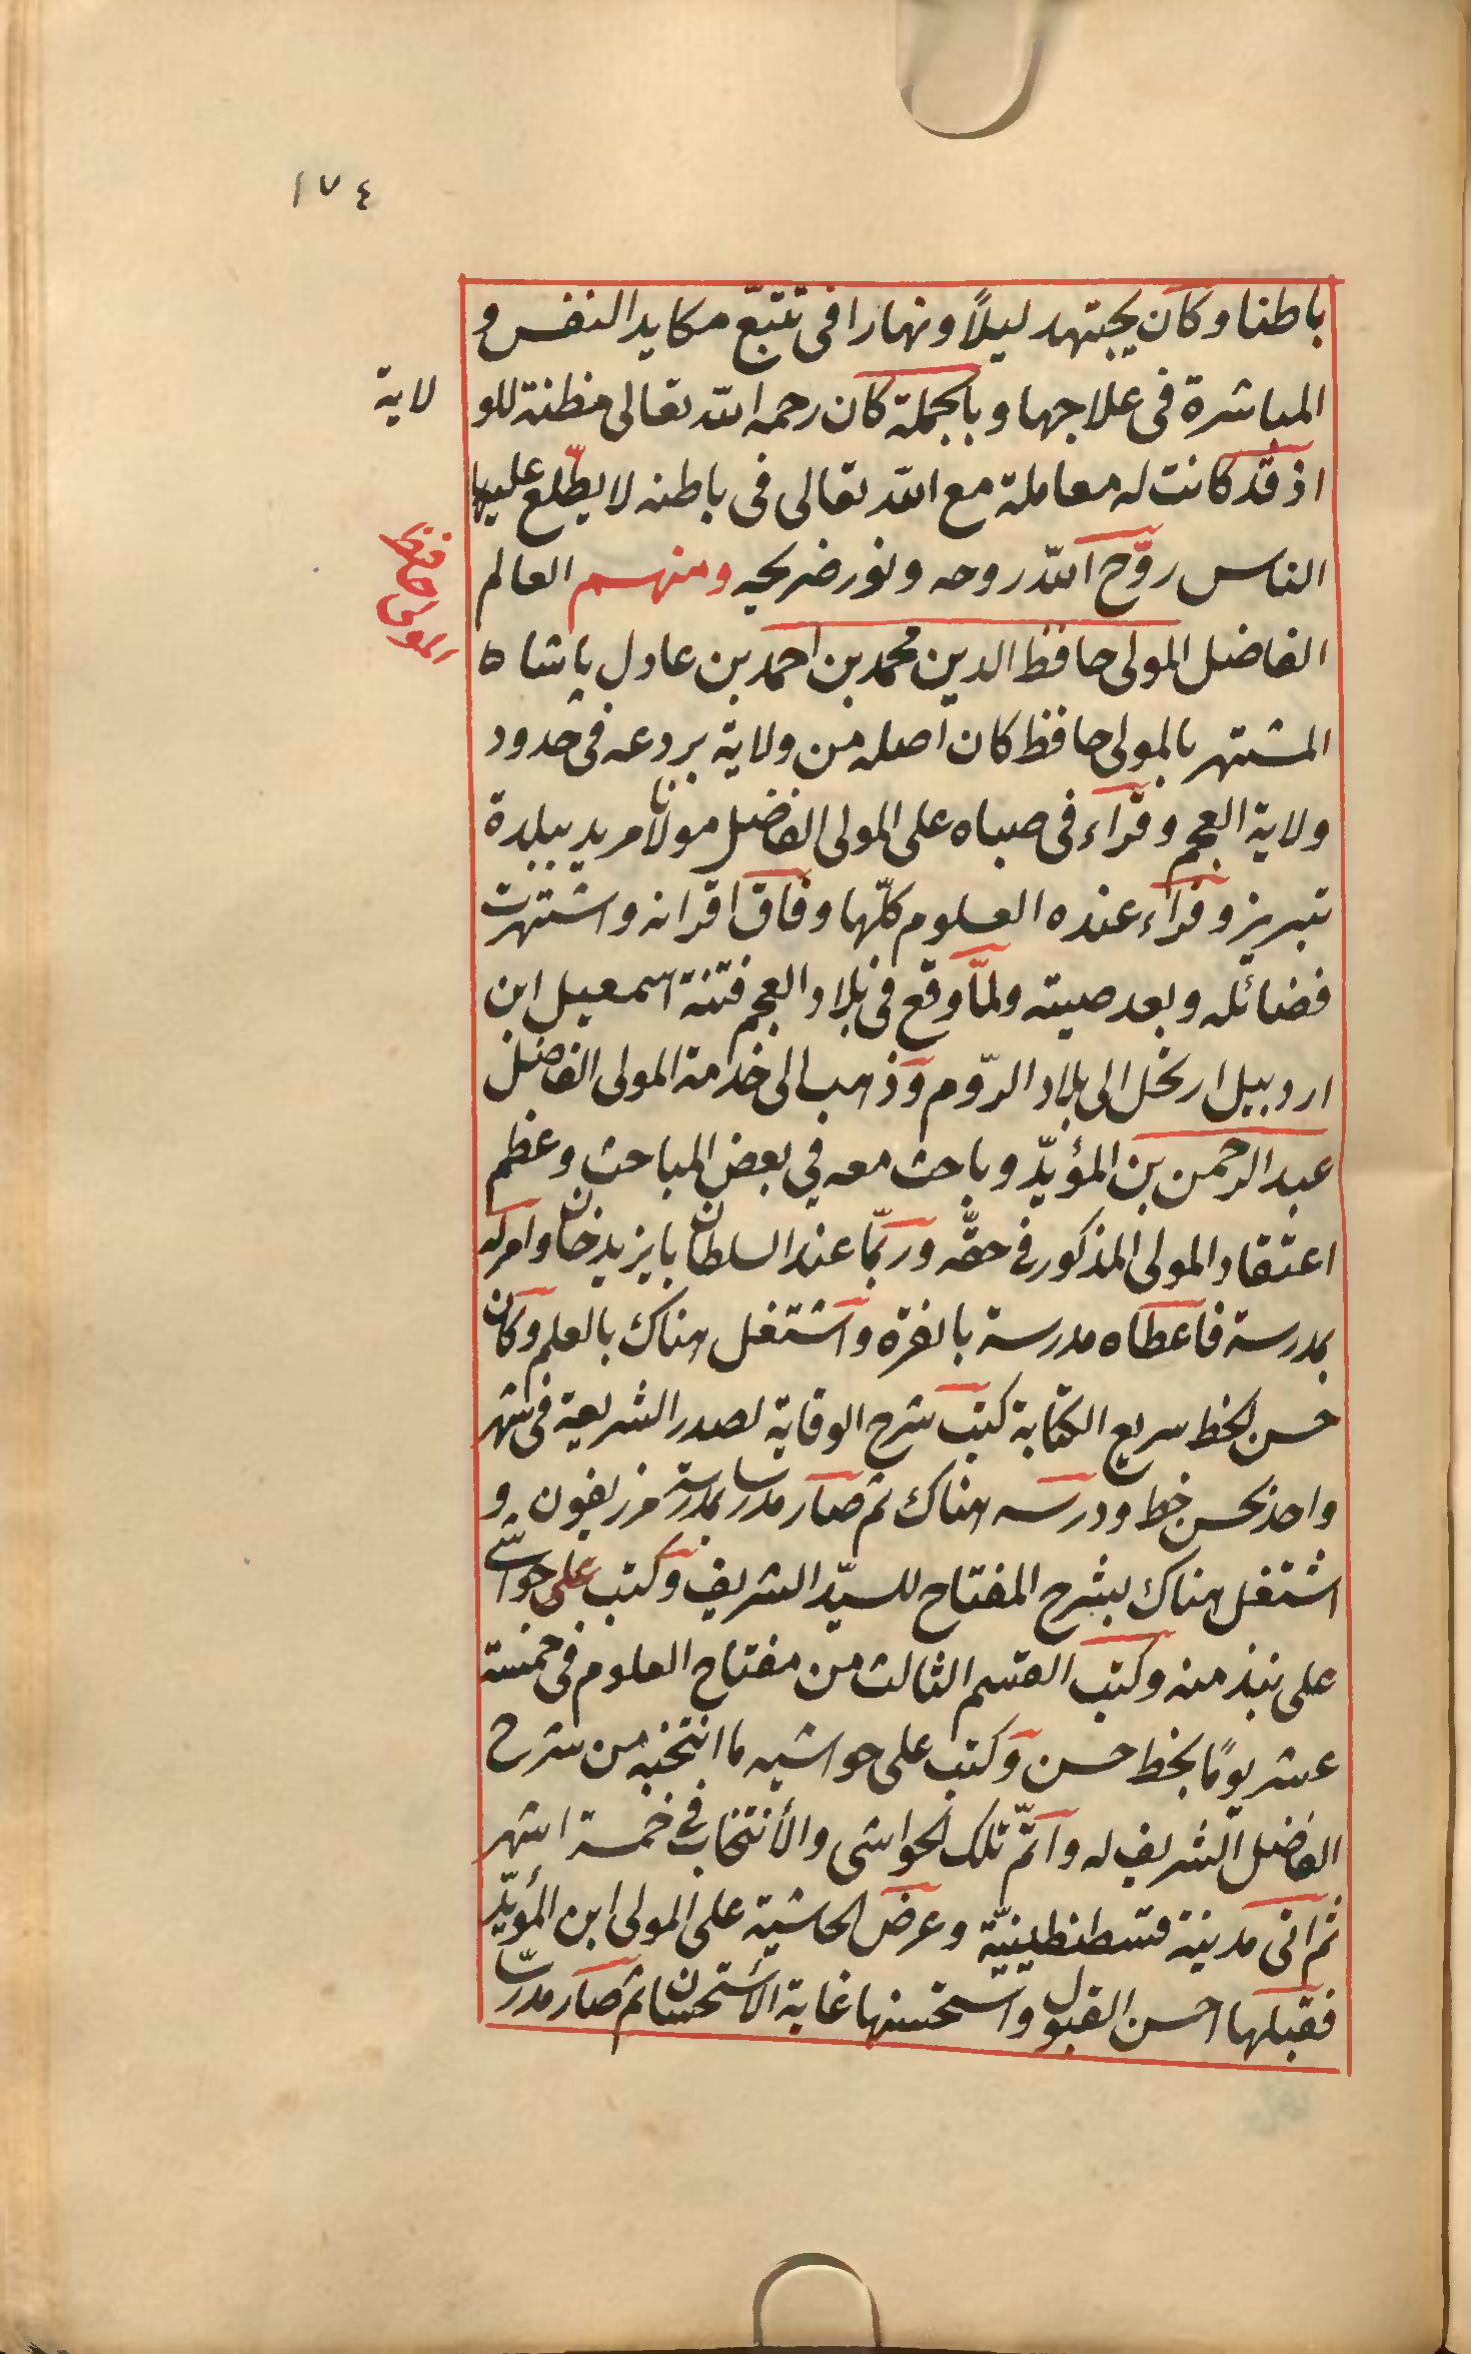 ١٧٤
باطنا وكان يجتهد ليلاً ونهارا فى تتبّع مكايد النفس و
المباشرة فى علاجها وبالجملة كان رحمه الله تعالى مظنة للو
لاية
اذ قد كانت له معاملة مع الله تعالى فى باطنه لا يطّلع عليها
الناس روّح الله روحه ونور ضريحه ومنهم العالم
المولى حافظ
الفاضل المولى حافظ الدين محمد بن احمد بن عادل پاشاه
المشتهر بالمولى حافظ كان اصله من ولاية بردعه فى حدود
ولاية العجم وقراء فى صباه على المولى الفاضل مولانا مريد ببلدة
تبريز وقراء عنده العلوم كلّها وفاق اقرانه واشتهرت
فضائله وبعد صيته ولمّا وقع فى بلاد العجم فتنة اسمعيل ابن
اردبيل ارتحل الى بلاد الرّوم وذهب الى خدمة المولى الفاضل
عبد الرحمن بن المؤيّد وباحث معه في بعض المباحث وعظم
اعتقاد المولى المذكور فى حقّه وربّا عند السلطان بايزيد خان وامر له
بمدرسة فاعطاه مدرسة بانقرة واشتغل هناك بالعلم وكان
حسن الخط سريع الكتابة كتب شرح الوقاية لصدر الشريعة فى شهر
واحد بحسن خط ودرسه هناك ثم صار مدرسا بمدرسة مرزيفون و
اشتغل هناك بشرح المفتاح للسيّد الشريف وكتب على حواشى
على نبذ منه وكتب القسم الثالث من مفتاح العلوم فى خمسة
عشر يومًا بخط حسن وكتب على حواشيه ما انتخبه من شرح
الفاضل الشريف له واتمّ تلك الحواشى والأنتخاب فى خمسة اشهر
ثم اتى مدينة قسطنطينيّة وعرض الحاشية على المولى ابن المؤيّد
فقبلها احسن القبول واستحسنها غاية الأستحسان ثم صار مدرّسا